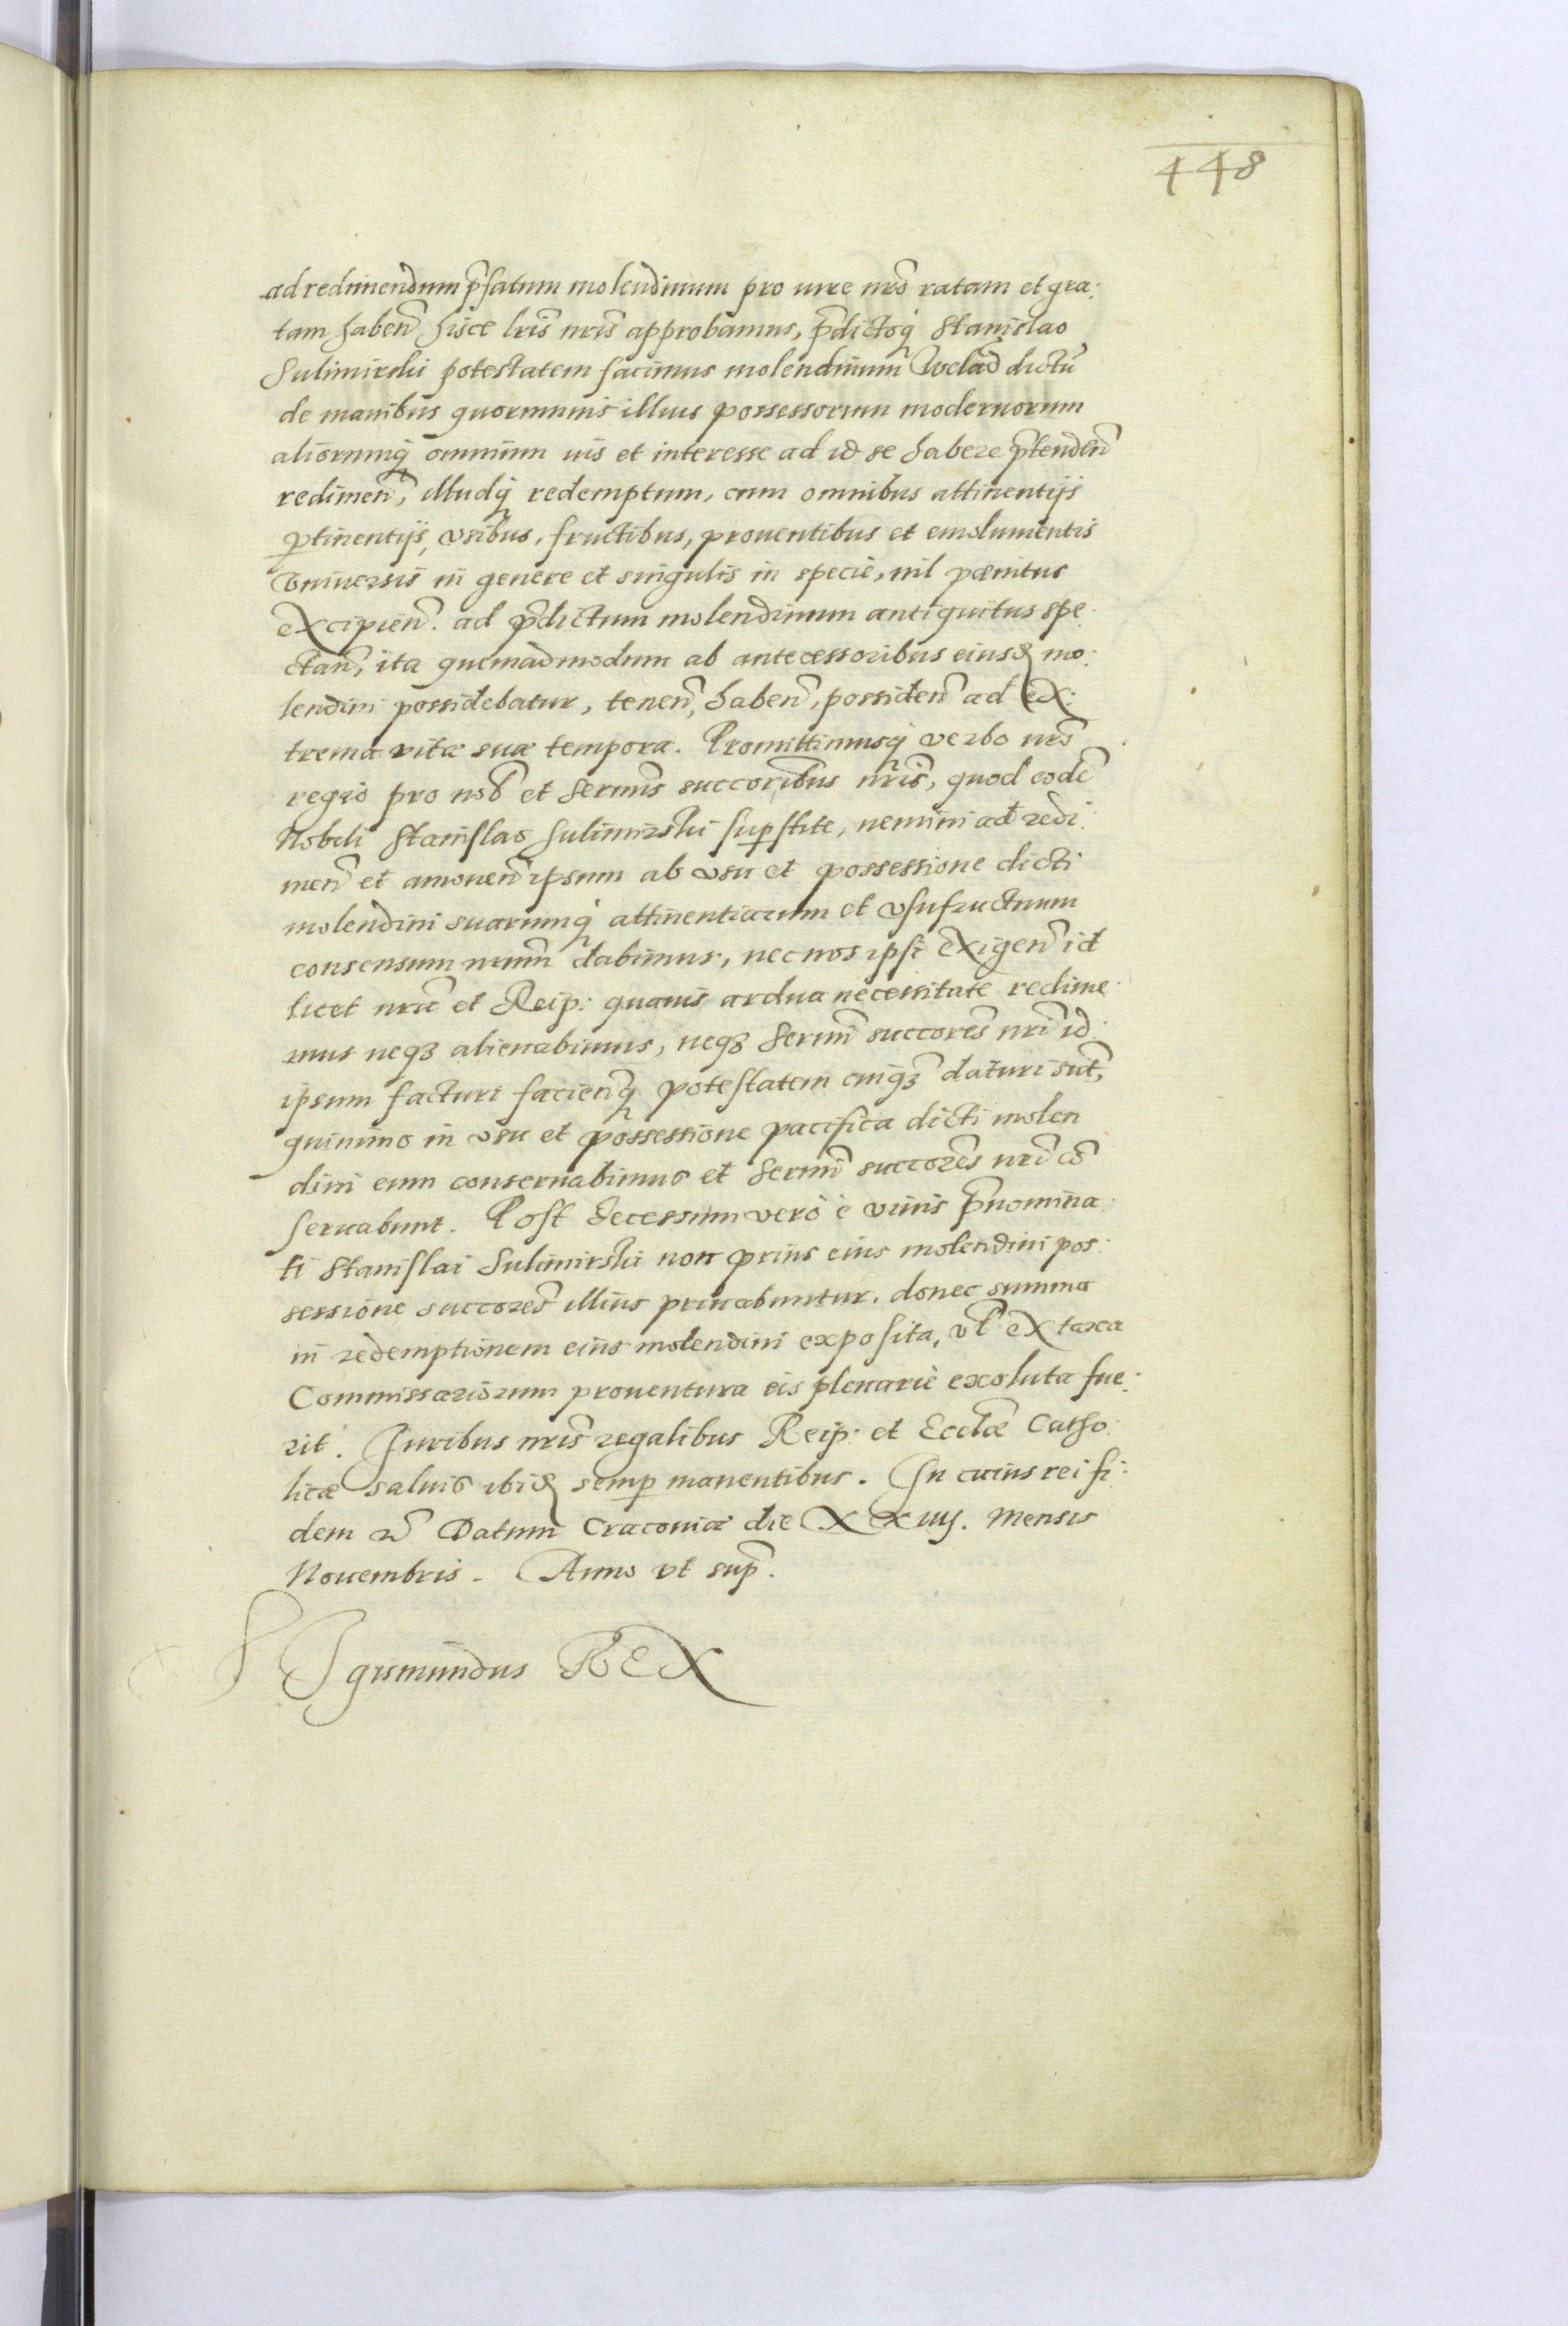 448
ad redimendum p̃fatum molendinum pro iure nr̃o ratam et gra:
tam haben̄ hisce lr̃is nr̃is approbamus, p̃dictoq́ Stanislao
Sulimirski potestatem facimus molendinum Welad̃ dictū
de manibus quorumuis illius possessorum modernorum
aliorumq́ omnium ius et interesse ad id se habere p̃tendēn
redimen̄, illudq́ redemptum, cum omnibus attinentijs
ꝑtinentijs, vsibus, fructibus, prouentibus et emolumentis
vniuersis in genere et singulis in specie, nil pænitus
excipien̄. ad p̃dictum molendinum antiquitus spe
ctan̄, ita quemadmodum ab antecessoribus eiusd̃ mo:
lendini possidebatur, tenen̄, haben̄, possiden̄ ad ex:
trema vitæ suæ tempora. Promittimusq́ verbo nr̃o
regio pro nob̃ et Sermīs succoribus nr̃is, quod eodē
Nobili Stanislao Sulimirski suꝑstite, nemini ad redi
men̄ et amouen̄ ipsum ab vsu et possessione dicti
molendini suarumq́ attinentiarum et vsufructuum
consensum nrūm dabimus, nec nos ipsi exigen̄ id
licet nrā et Reip: quauis ardua necessitate redime
mus neqꝫ alienabimus, neqꝫ Sermī succorēs nrī id
ipsum facturi facienq́ potestatem cuiqꝫ daturi sūt,
quinimo in vsu et possessione pacifica dicti molen
dini eum conseruabimus et Sermī succorēs nrī cō
seruabunt. Post decessum vero è viuis p̃nomina
ti Stanislai Sulimirski non prius eius molendini pos:
sessione succorēs illius priuabuntur. donec summa
in redemptionem eius molendini exposita, vl̃ ex taxa
Commissariorum prouentura eis plenariè exoluta fue:
rit. Juribus nr̃is regalibus Reip: et Eccl̃æ Catho
licæ saluis ibid̃ semꝑ manentibus. In cuius rei fi:
dem &̃ Datum Cracoviæ die XXiiij. Mensis
Nouembris. Anno vt sup̃.
Sigismundus REX